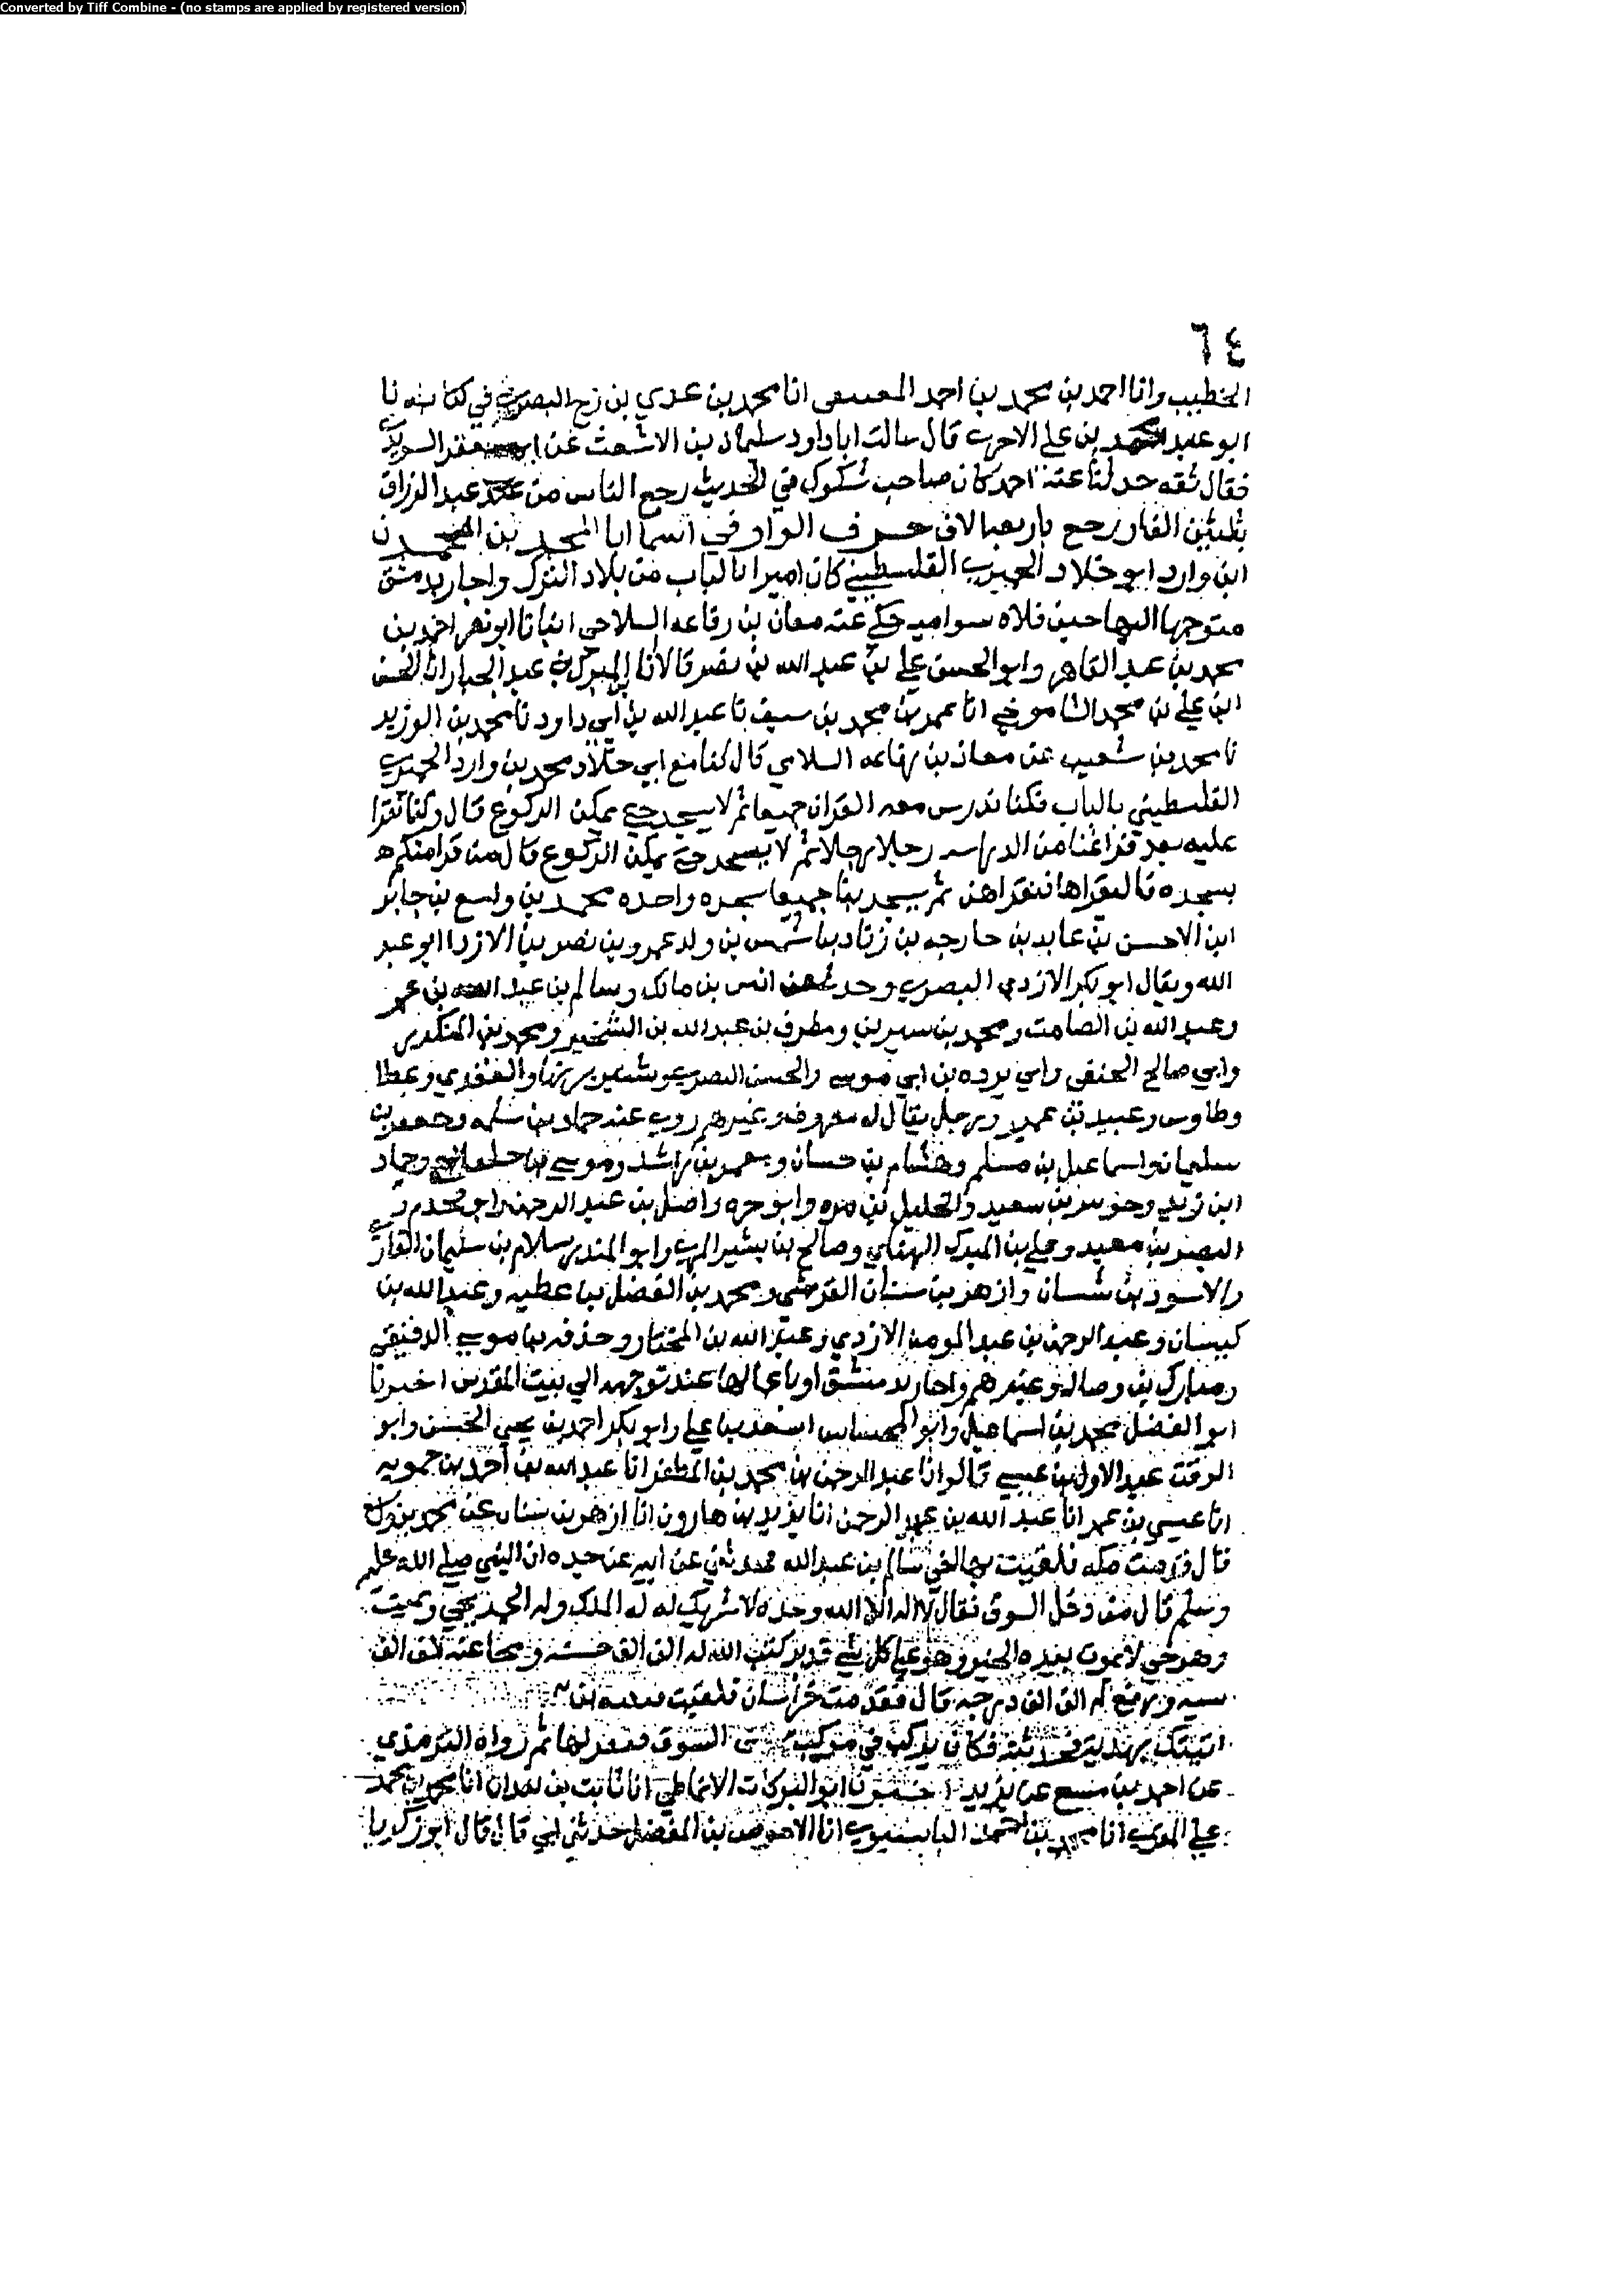 Converted by Tiff Combine - (no stamps are applied by registered version)
٦٤
الخطيب وانا احمد بن محمد بن احمد انا محمد بن عدي بن زحر البصري في كتابه نا
ابو عبيد محمد بن علي الاجري قال سالت ابا داود سليمان بن الاشعث عن ابي جعفر السويدي
فقال ثقه حدثنا عنه احمد كان صاحب شكوك في الحديث رجع الناس من عند عبد الرزاق
بثلثين الفا ورجع باربعه الاف حرف الواو في اسما ابا المحمدين محمد
ابن وارد ابو خلاد الحميري الفلسطيني كان اميرا بالباب من بلاد الترك واجتاز بدمشق
متوجها اليها حين ولاه حكى عنه معان بن رفاعه السلامي انبانا ابو نصر احمد بن
محمد بن عبد القاهر وابو الحسن علي بن عبد الله بن نصر قالا انا المبرك بن عبد الجبار انا الحسن
ابن علي بن محمد انا عمر بن محمد بن سيف نا عبد الله بن ابي داود نا محمد بن الوزير
نا محمد بن شعيب عن معان بن رفاعه السلامي قال كنا مع ابي خلاد محمد بن وارد الحميري
الفلسطيني بالباب فكنا ندرس معه القران جميعا ثم لا يسجد حتى يمكن الركوع قال وكنا نقرا
عليه بعد فراغنا من الدراسه رجلا رجلا ثم لا يسجد حتى يمكن الركوع قال من قرا منكم
بسجده فاليقراها فنقراهن ثم يسجد بنا جميعا سجده واحده محمد بن واسع بن جابر
ابن الاخنس بن عابد بن خارجه بن زياد بن شمس بن ولد عمرو بن نصر بن الازد ابو عبد
الله ويقال ابو بكر الازدي البصري وحدث عن انس بن مالك وسالم بن عبد الله بن عمر
وعبد الله بن الصامت ومحمد بن سيرين ومطرف بن عبد الله بن الشخير ومحمد بن المنكدر
وابي صالح الحنفي وابي برده بن ابي موسى والحسن البصري وعطا
وطاوس وعبيد بن عمير ورجل يقال له معروف وغيرهم روى عنه حماد بن سلمه وجعفر بن
سليمان واسماعيل بن مسلم وهشام بن حسان ومعمر بن راشد وموسى بن وحماد
ابن زيد بن سعيد والخليل بن مره وابو حره واصل بن عبد الرحمن
بن معبد وعلي بن المبرك الهنائي وصالح بن بشير المري وابو المنذر سلام بن سليمان القاري
والاسود بن شيبان وازهر بن سنان القرشي ومحمد بن الفضل بن عطيه وعبد الله بن
كيسان وعبد الرحمن بن عبد المومن الازدي وعبد الله بن المختار بن موسى الدقيقي
وغيرهم واجتاز بدمشق او باعمالها عند توجهه الى بيت المقدس اخبرنا
ابو الفضل محمد بن اسماعيل وابو المحاسن اسعد بن علي وابو بكر احمد بن يحيى الحسن وابو
الوقت عبد الاول بن عيسى قالوا انا عبد الرحمن بن محمد بن المظفر انا عبد الله بن احمد بن حمويه
انا عيسى بن عمر انا عبد الله بن عبد الرحمن انا يزيد بن هارون انا ازهر بن سنان عن محمد بن واسع
قال قدمت مكه فلقيت بها اخي سالم بن عبد الله فحدثني عن ابيه عن جده ان النبي صلى الله عليه
وسلم قال من دخل السوق فقال لا اله الا الله وحده لا شريك له له الملك وله الحمد يحيي ويميت
وهو حي لا يموت بيده الخير وهو على كل شي قدير كتب الله له الف الف حسنه ومحا عنه الف الف
سيه ورفع له الف الف درجه قال فقدمت خراسان فلقيت قتيبه بن
اتيتك بهديه فحدثته فكان يركب في موكبه السوق فيقولها ثم رواه الترمذي
عن احمد بن منيع عن يزيد اخبرنا ابو البركات الانماطي انا ثابت بن بندار انا محمد بن
علي انا محمد بن احمد البابسيري انا الاحوص بن المفضل حدثني ابي قال قال ابو زكريا